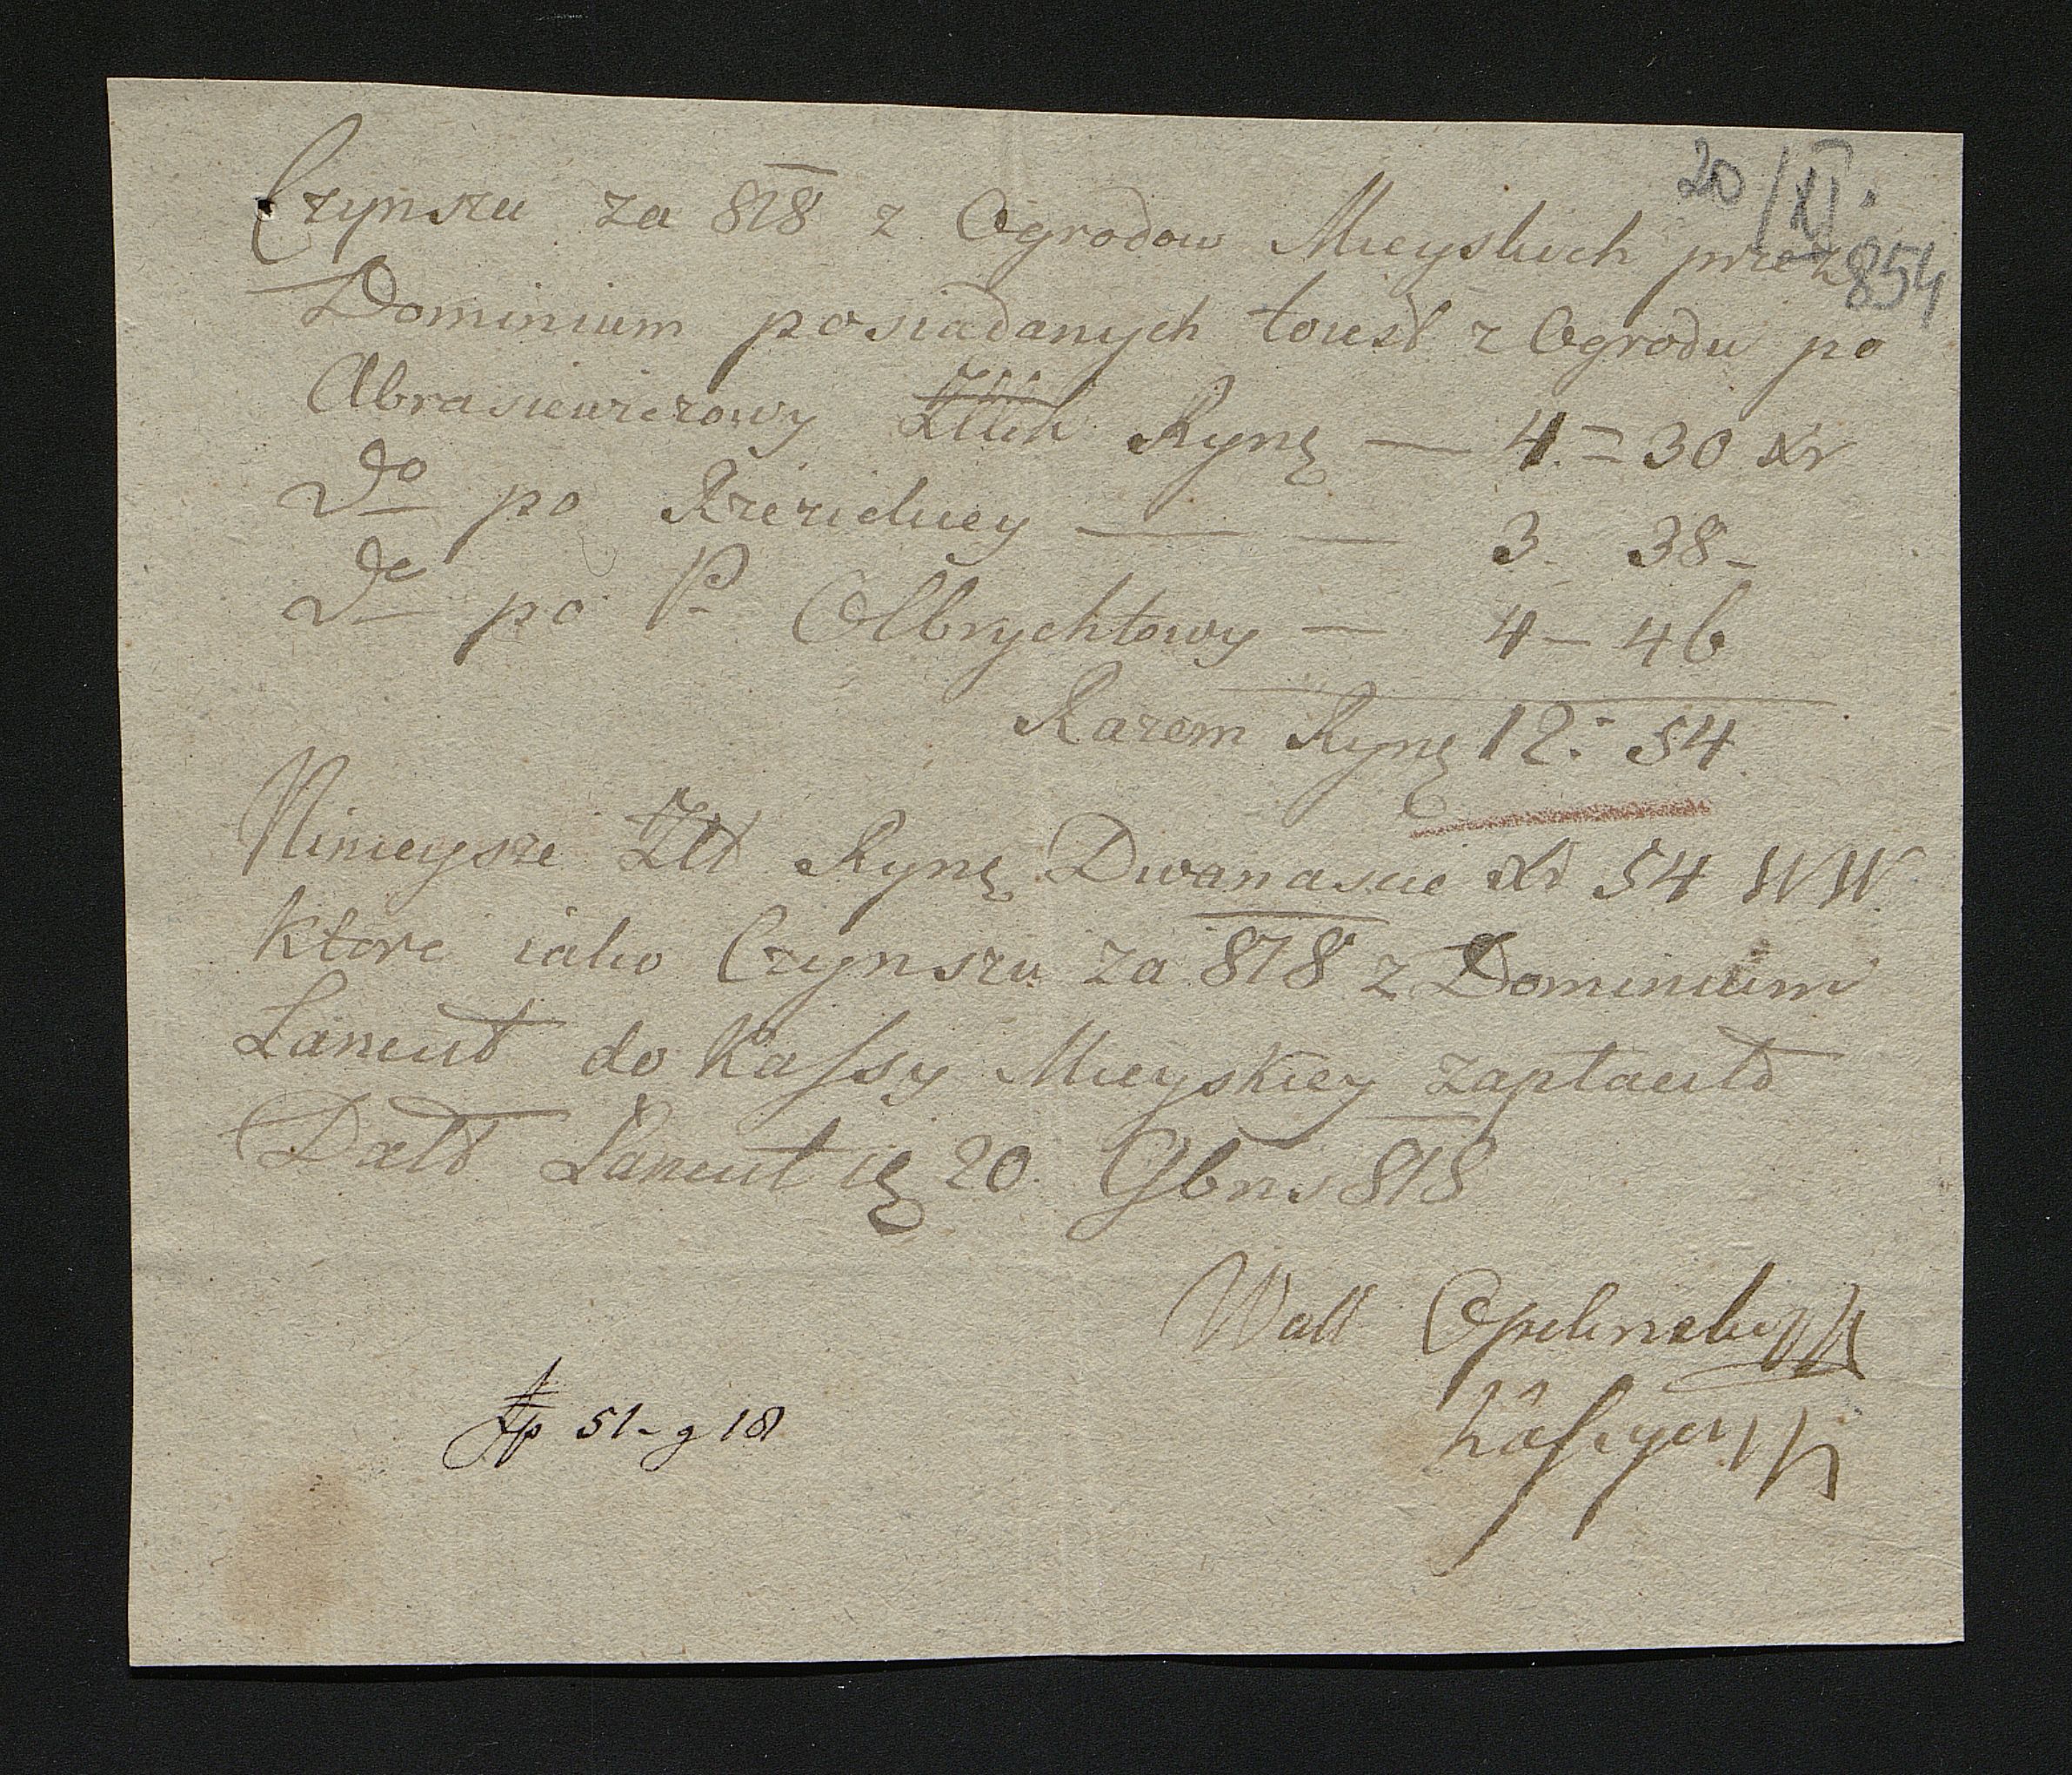 20/XI.
854
Czynszu za 818 z Ogrodow Mieyskich przez
Dominium posiadanych to iest z Ogrodu po
Abrasiewiczowy Ryńę — 4. = 30 Xr
Do po — — 3. 38 -
Do po P Olbrychtowy — 4 - 46
Razem Ryńę 12: 54.
Ninieysze Złt Ryńę Dwanascie Xr 54 WW
ktore iako Czynszu za 818 z Dominium
Łancut do Kassy Mieyskiey zapłacił
Datt Łancut 20. 9bris 818
Wall Opelinski
Kassyer
51 - 9 18